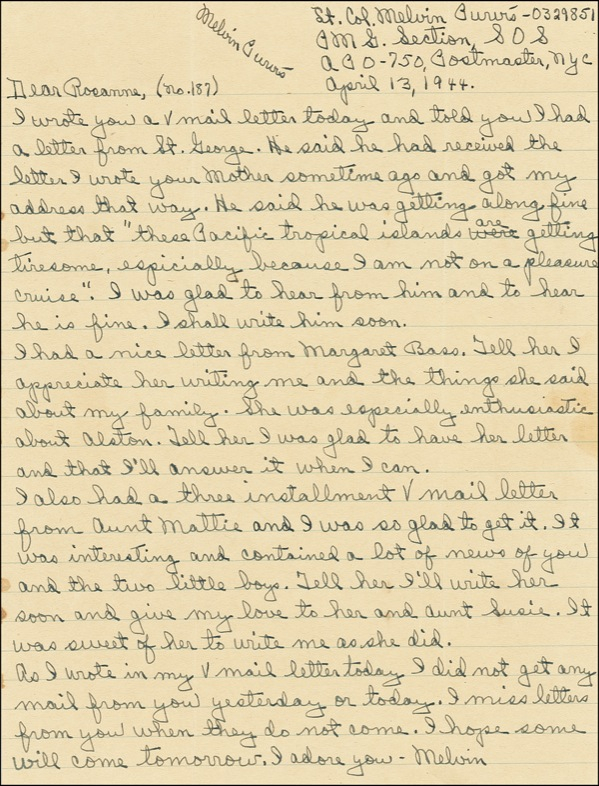 Melvin Purvis
Lt. Col. Melvin Purvis - 0329851
P M G. Section, S O S
A P O - 750, Postmaster, NYC
April 13, 1944.
Dear Rosanne, (no. 187)
I wrote you a V mail letter today and told you I had
a letter from St. George. He said he had received the
letter I wrote your Mother sometime ago and got my
address that way. He said he was getting along fine
but that "these Pacific tropical islands were are getting
tiresome, espicially because I am not on a pleasure
cruise". I was glad to hear from him and to hear
he is fine. I shall write him soon.
I had a nice letter from Margaret Bass. Tell her I
appreciate her writing me and the things she said
about my family. She was especially enthusiastic
about Alston. Tell her I was glad to have her letter
and that I'll answer it when I can.
I also had a three installment V mail letter
from Aunt Mattie and I was so glad to get it. It
was interesting and contained a lot of news of you
and the two little boys. Tell her I'll write her
soon and give my love to her and Aunt Susie. It
was sweet of her to write me as she did.
As I wrote in my V mail letter today I did not get any
mail from you yesterday or today. I miss letters
from you when they do not come. I hope some
will come tomorrow. I adore you - Melvin